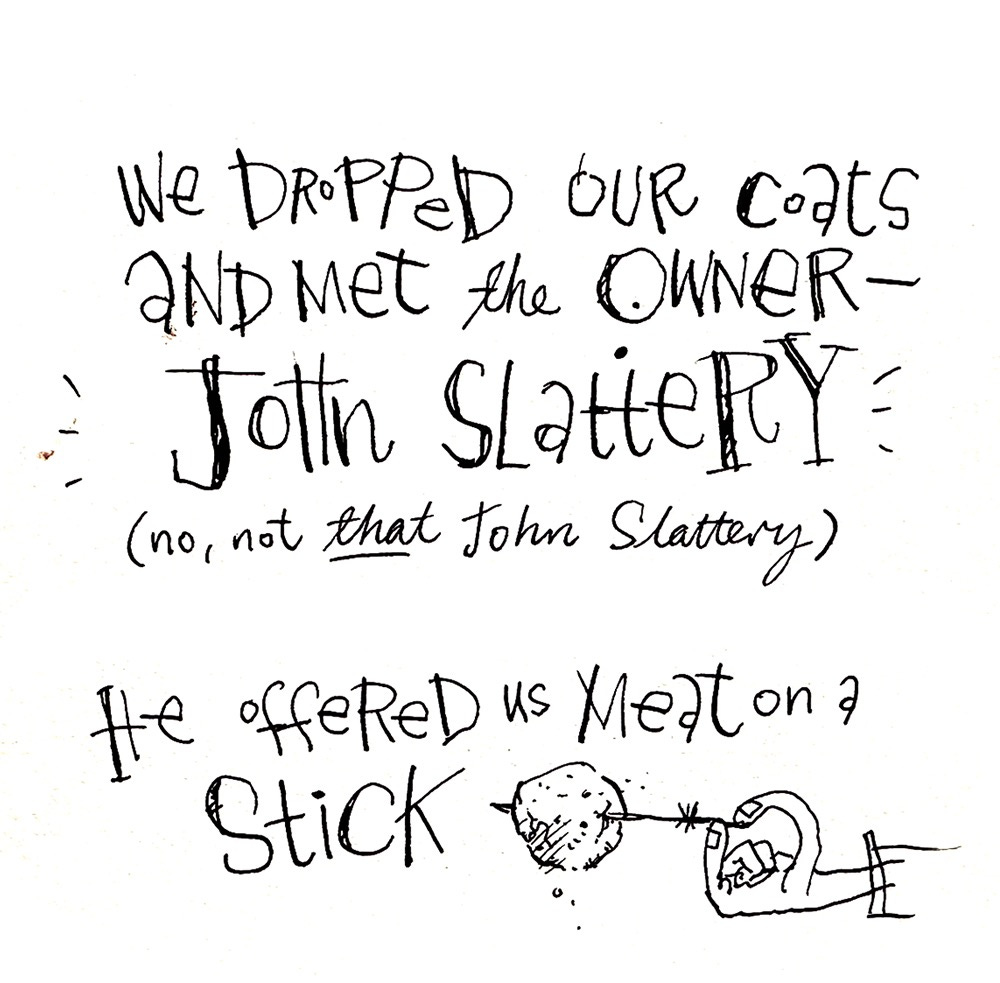 We DRoPPeD OUR coats
aND Met the OWNeR—
John SLatteRY
(no, not that John Slattery)
He offeReD us Meat on a
StiCK